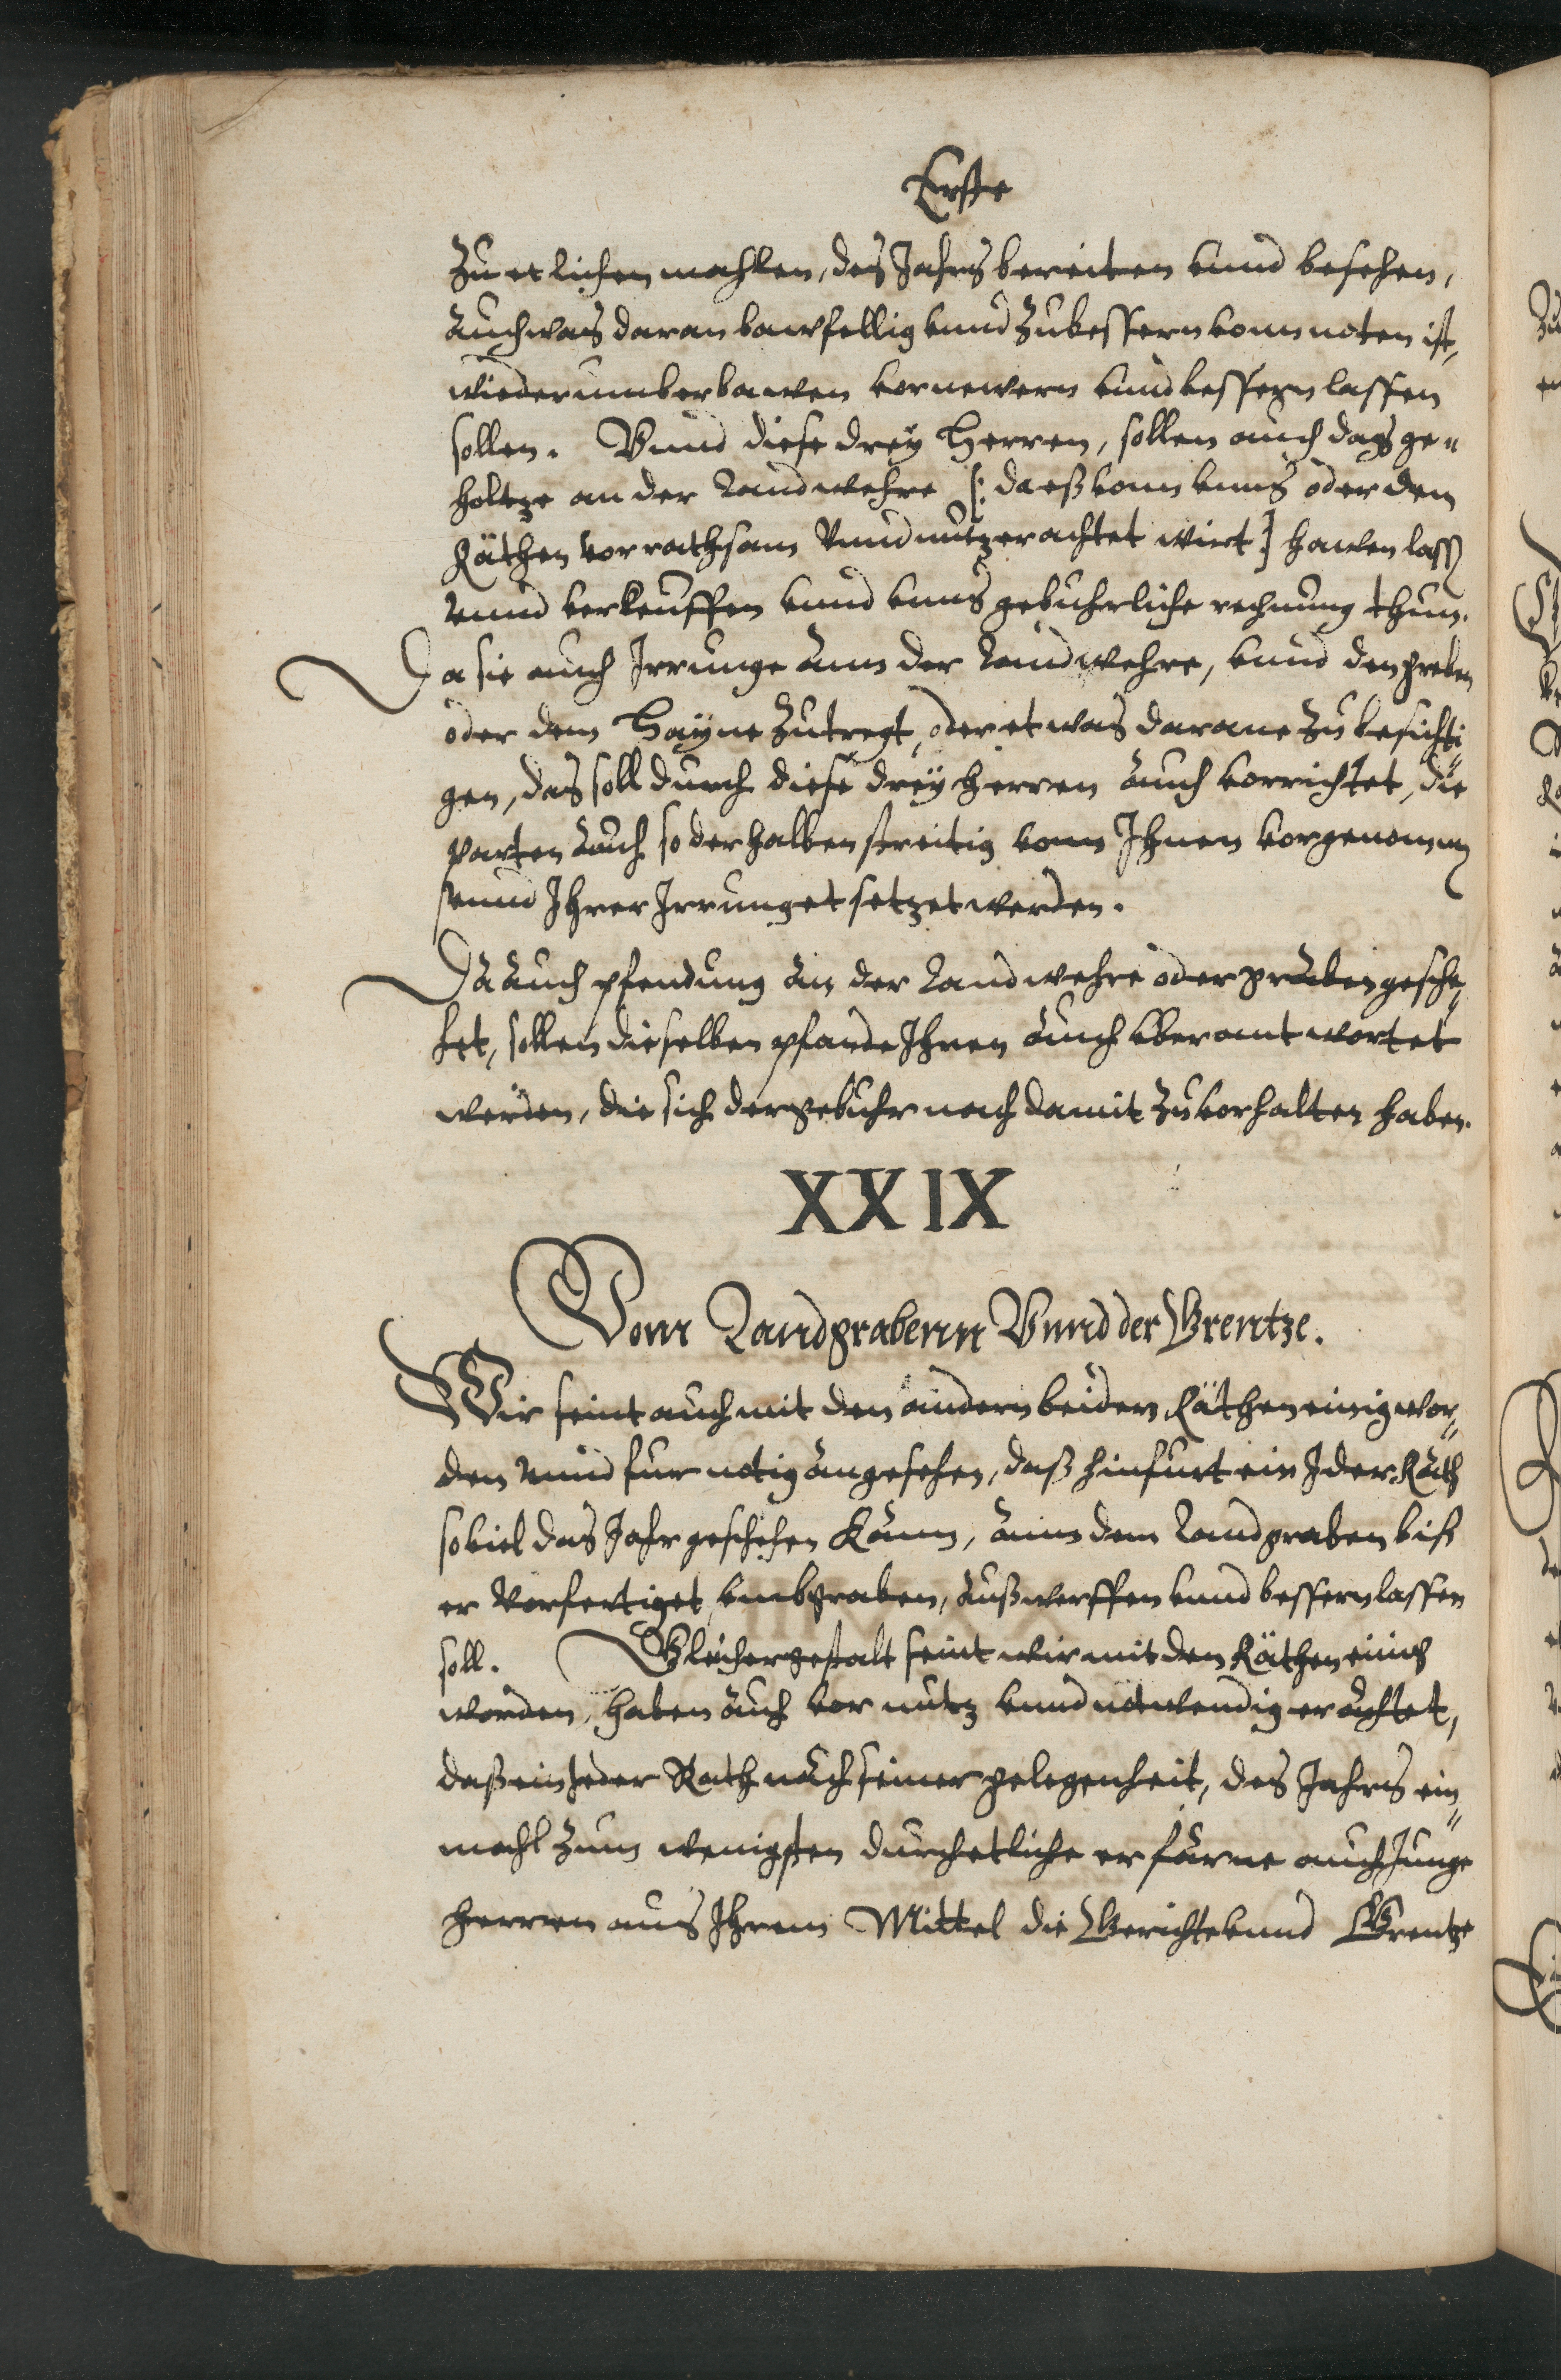 Erste
Zu etlichen mahlen, des Jahrs bereiten vnnd besehen,
Auch was daran bawfellig vnnd Zubessern vonn noten ist,
wiederumb erbawen vornewern vnnd bessern lassen
sollen. Vnnd diese drey Herren, sollen auch das ge„
holtze an der Landwehre [: da eß vonn vnns oder den
Räthen vor rathsam Vnnd nutz erachtet wirt] hawen lass
vnnd verkeuffen vnnd vnns gebuhrliche rechnung thun.
Da sie auch Jrrunge Ann der Landwehre, vnnd den
oder dem Hayne Zutregt, oder etwas darane Zu besichti
gen, das soll durch diese drey herren Auch vorrichtet, die
parten Auch so derhalben streitig vonn Ihnen vorgenomm
vnnd Ihrer Jrrung etsetzet werden.
Da Auch pfendung An der Landwehre oder graben gesche„
het, sollen dieselben pfande Ihnen Auch vberantwortet
werden, die sich der gebuhr nach damit Zuvorhalten haben.
XXIX
Vom Landgrabenn Vnnd der Grentze.
Wir seint auch mit den andern beiden Räthen einig wor„
den vnnd fur notig Angesehen, daß hinfurt ein Jder Rath
soviel das Jahr geschehen Kann, Ann dem Landgraben biß
er Vorfertiget, vmbgraben, Außwerffen vnnd bessern lassen
soll. Gleichergestalt seint wir mit den Räthen einig
worden, haben Auch vor nutz vnnd notwendig erachtet,
daß ein Jeder Rath nach seiner gelegenheit, des Jahrs ein„
mahl Zum wenigsten durch etliche erfarne auch Junge
herren aus Ihrem Mittel die Gerichte vnnd Grentze